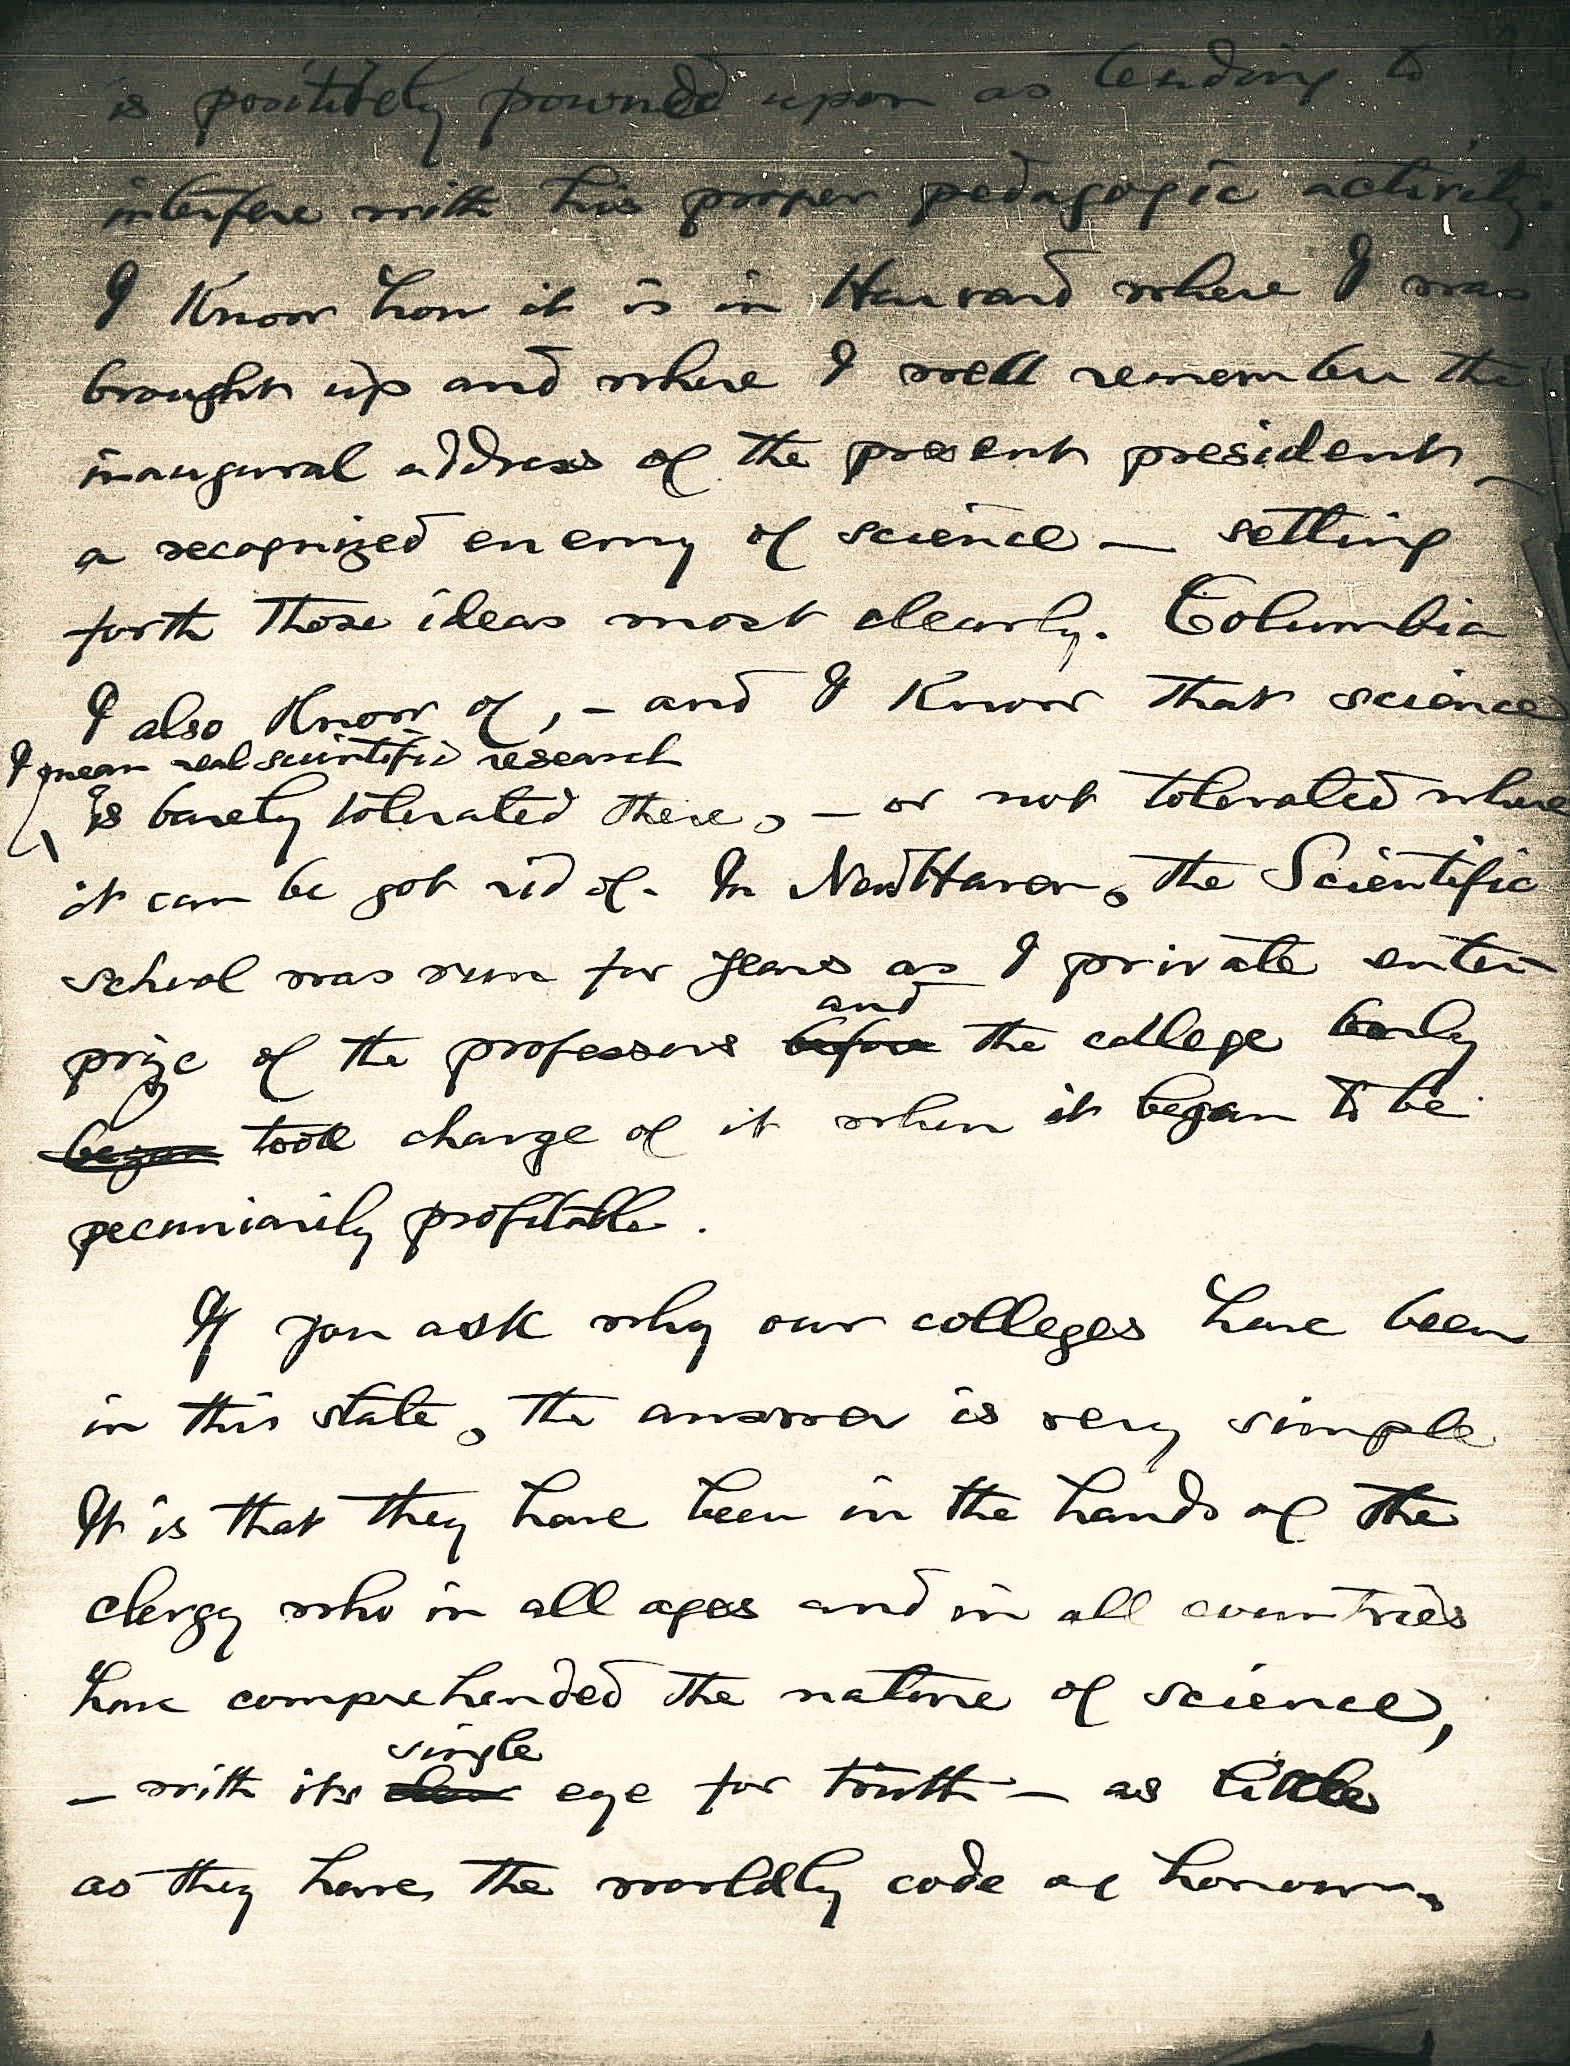 is positively pounced upon as tending to
interfere with his proper pedagogic activity.
I know how it is in Harvard where I was
brought up and where I well remember the
inaugural address of the present president –
a recognized enemy of science – setting
forth those ideas most clearly. Columbia
I also know of, – and I know that science
I mean real scientific research
is barely tolerated there, – or not tolerated where
it can be got rid of. In New Haven, the Scientific
school was run for years as a private enter-
prize of the professors before the college
and
began took charge of it when it began to be
pecuniarily profitable.
If you ask why our colleges have been
in this state, the answer is very simple
It is that they have been in the hands of the
clergy who in all ages and in all countries
have comprehended the nature of science,
single
– with its eye for truth – as little
as they have the worldly code of honour,